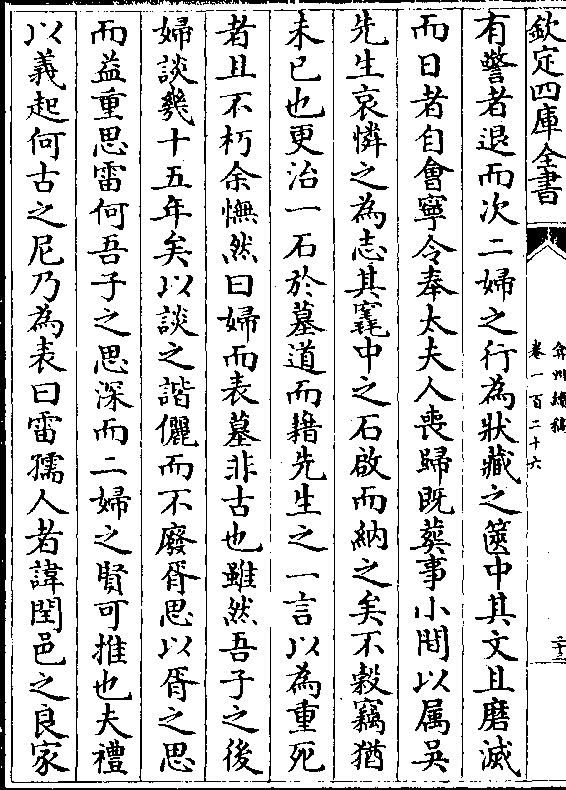 欽定四庫全書
弇州續稿
卷一百二十六
二十三
有警者退而次二婦之行為狀藏之篋中其文且磨滅
而日者自會寧令奉太夫人喪歸既葬事小閒以属吳
先生哀憐之為志其窀中之石啟而納之矣不穀竊猶
未已也更治一石於墓道而藉先生之一言以為重死
者且不朽余憮然曰婦而表墓非古也雖然吾子之後
婦談幾十五年矣以談之諧儷而不廢胥思以胥之思
而益重思雷何吾子之思深而二婦之賢可推也夫禮
以義起何古之尼乃為表曰雷孺人者諱閏邑之良家